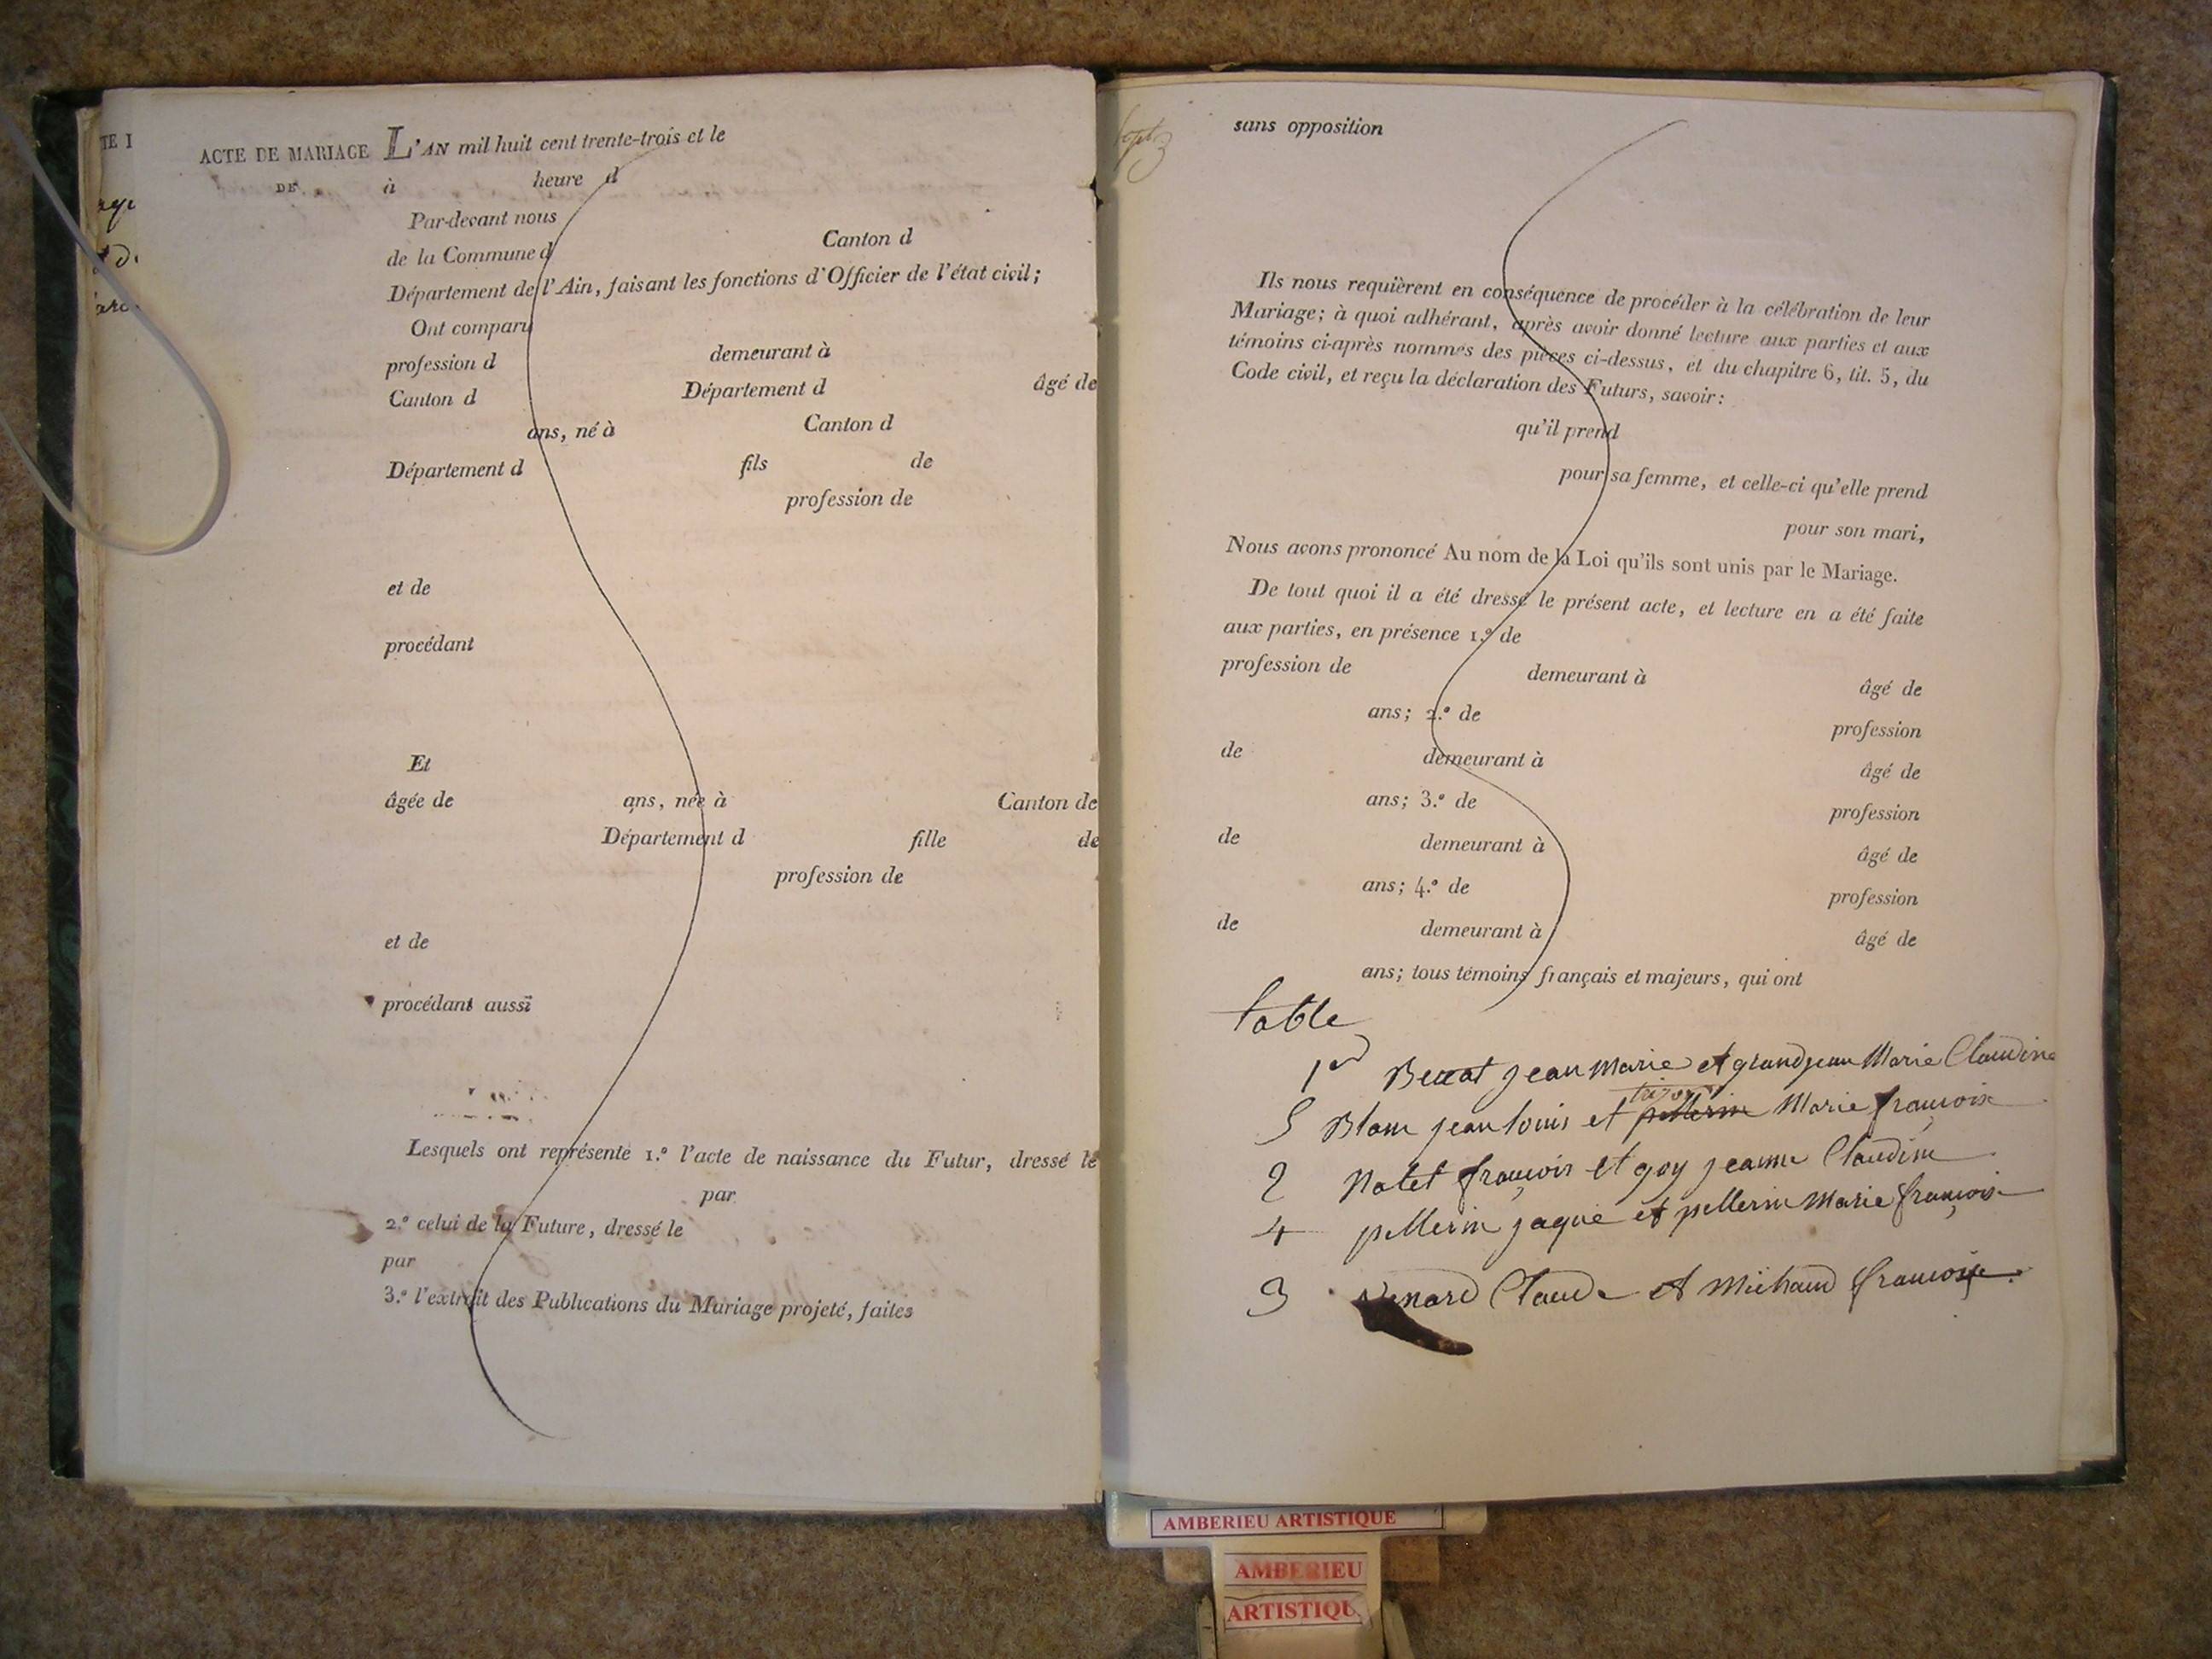 TE I
ACTE DE MARIAGE L'AN mil huit cent trente-trois et le
DE à heure d
Par-devant nous
de la Commune d Canton d
Département de l'Ain, faisant les fonctions d'Officier de l'état civil;
Ont comparu
profession d demeurant à
Canton d Département d âgé de
ans, né à Canton d
Département d fils de
profession de
et de
procédant
Et
âgée de ans, née à Canton de
Département d fille de
profession de
et de
procédant aussi
Lesquels ont représenté 1.º l'acte de naissance du Futur, dressé le
par
2.º celui de la Future, dressé le
par
3.º l'extrait des Publications du Mariage projeté, faites
sans opposition
Ils nous requièrent en conséquence de procéder à la célébration de leur
Mariage; à quoi adhérant, après avoir donné lecture aux parties et aux
témoins ci-après nommés des pièces ci-dessus, et du chapitre 6, tit. 5, du
Code civil, et reçu la déclaration des Futurs, savoir:
qu'il prend
pour sa femme, et celle-ci qu'elle prend
pour son mari,
Nous avons prononcé Au nom de la Loi qu'ils sont unis par le Mariage.
De tout quoi il a été dressé le présent acte, et lecture en a été faite
aux parties, en présence 1.º de
profession de demeurant à âgé de
ans; 2.º de profession
de demeurant à âgé de
ans; 3.º de profession
de demeurant à âgé de
ans; 4.º de profession
de demeurant à âgé de
ans; tous témoins français et majeurs, qui ont
table
1er jean Marie et grandjean Marie Claudine
5 Blanc jean louis et pellerin Marie françoise
2 Notet françois et goy jeanne Claudine
4 pellerin jaque et pellerin Marie françoise
3 Claude et Michaud françoise
AMBERIEU ARTISTIQUE
AMBERIEU
ARTISTIQU